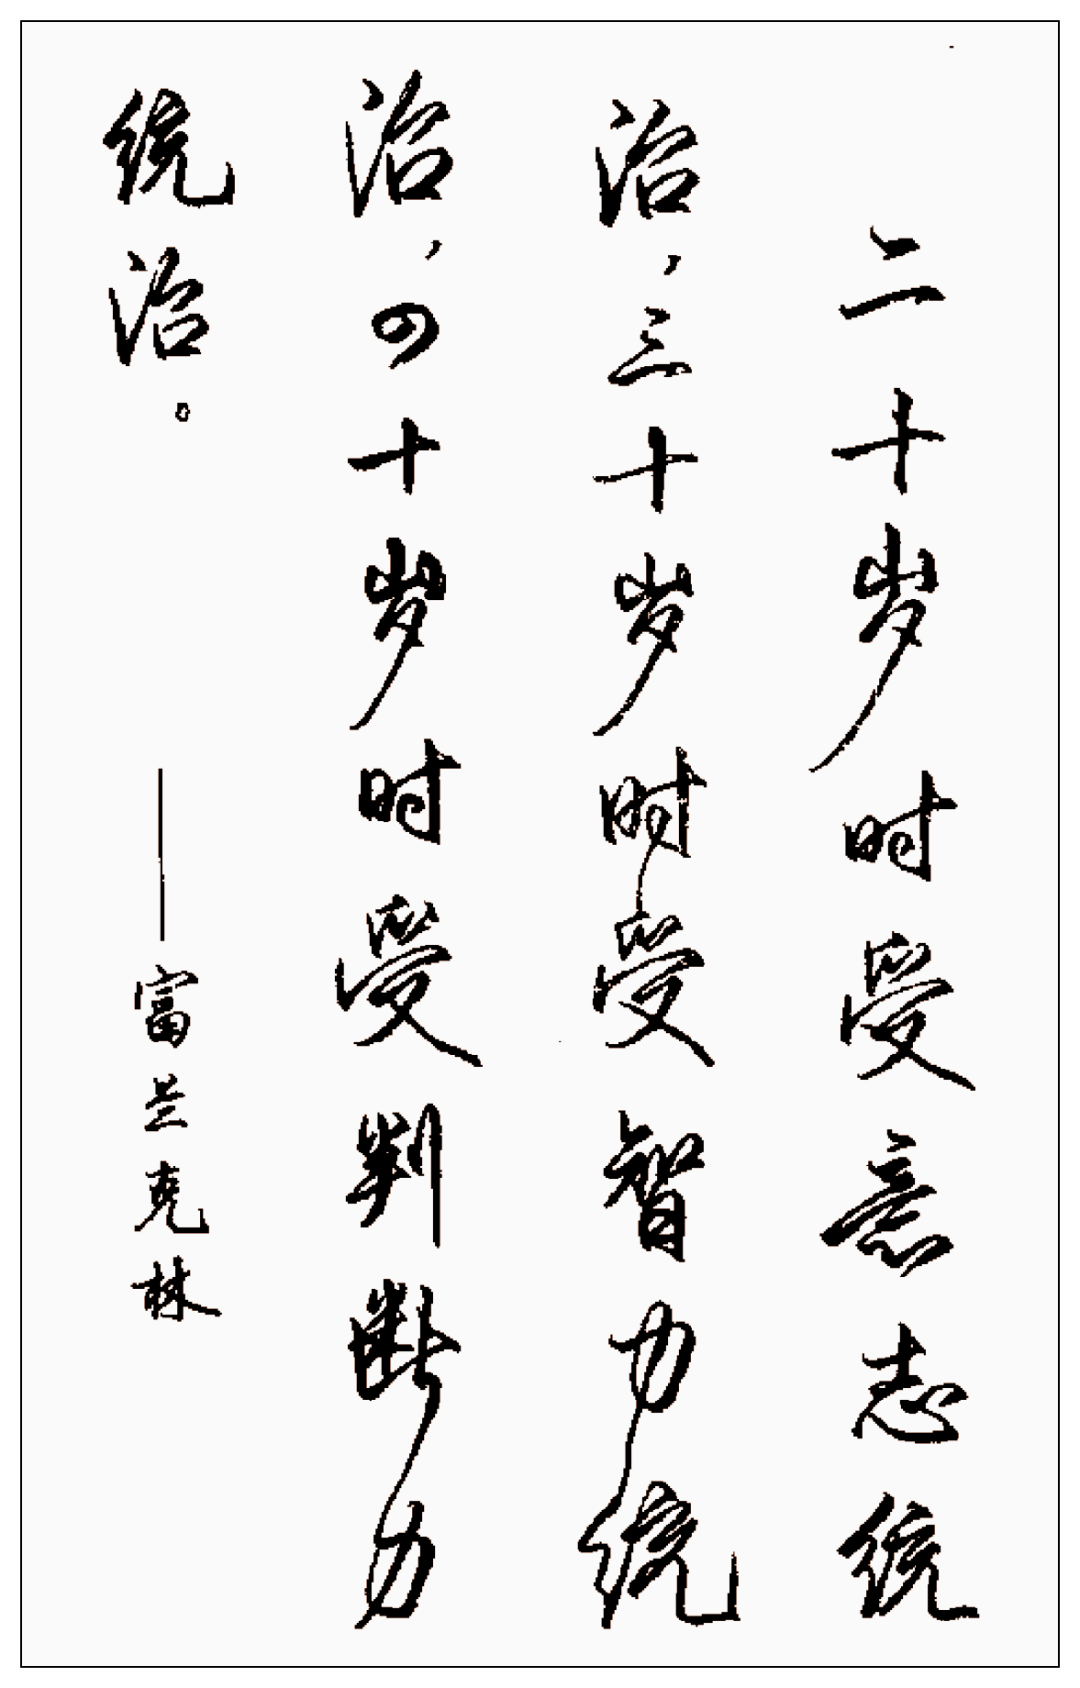 二十岁时受意志统
治，三十岁时受智力统
治，四十岁时受判断力
统治。
——富兰克林